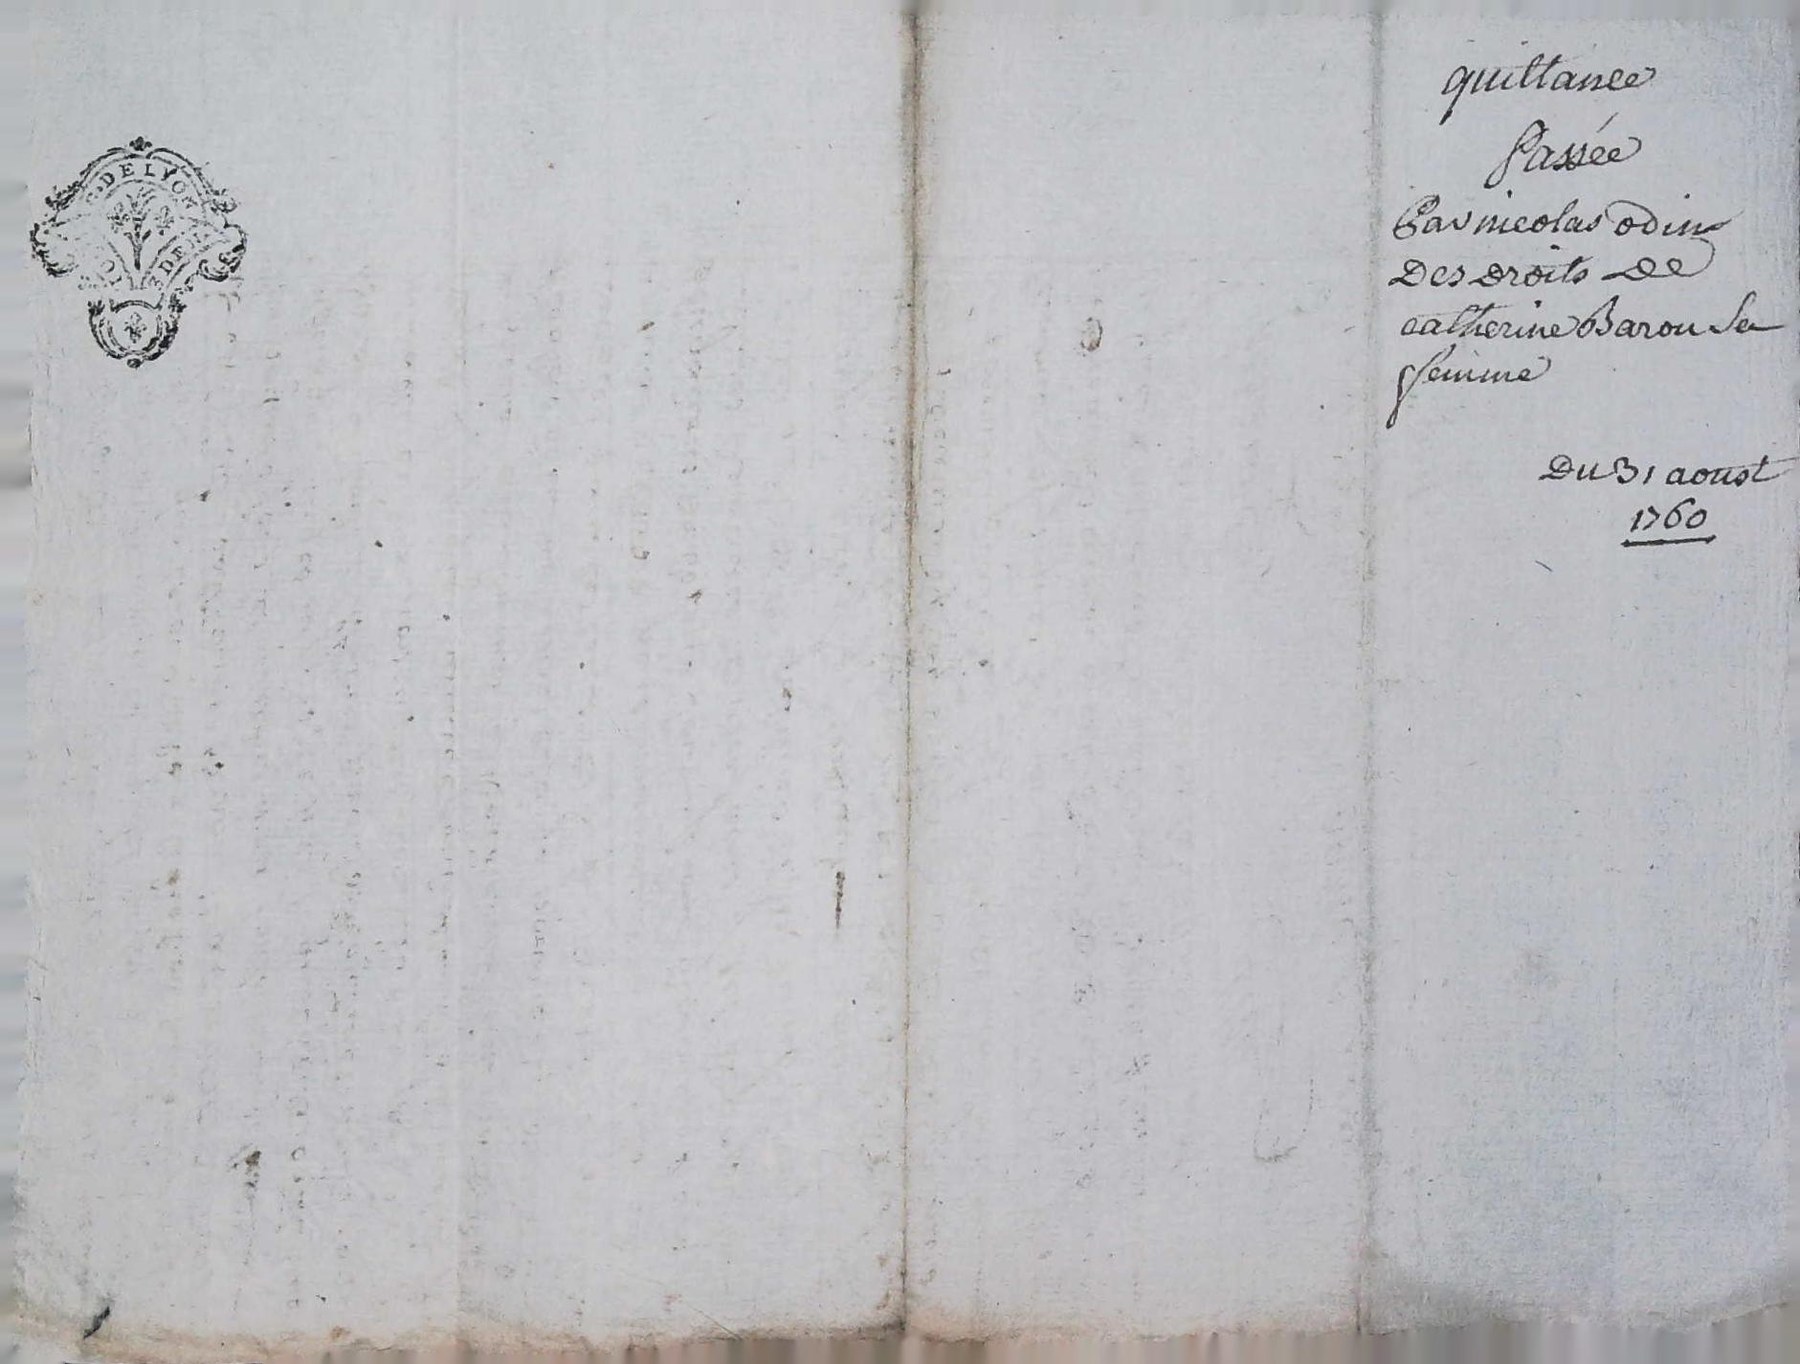 DE LYON
quittance
Passée
Par nicolas odin
Des droits De
catherine Barou Sa
femme
Du 31 aoust
1760